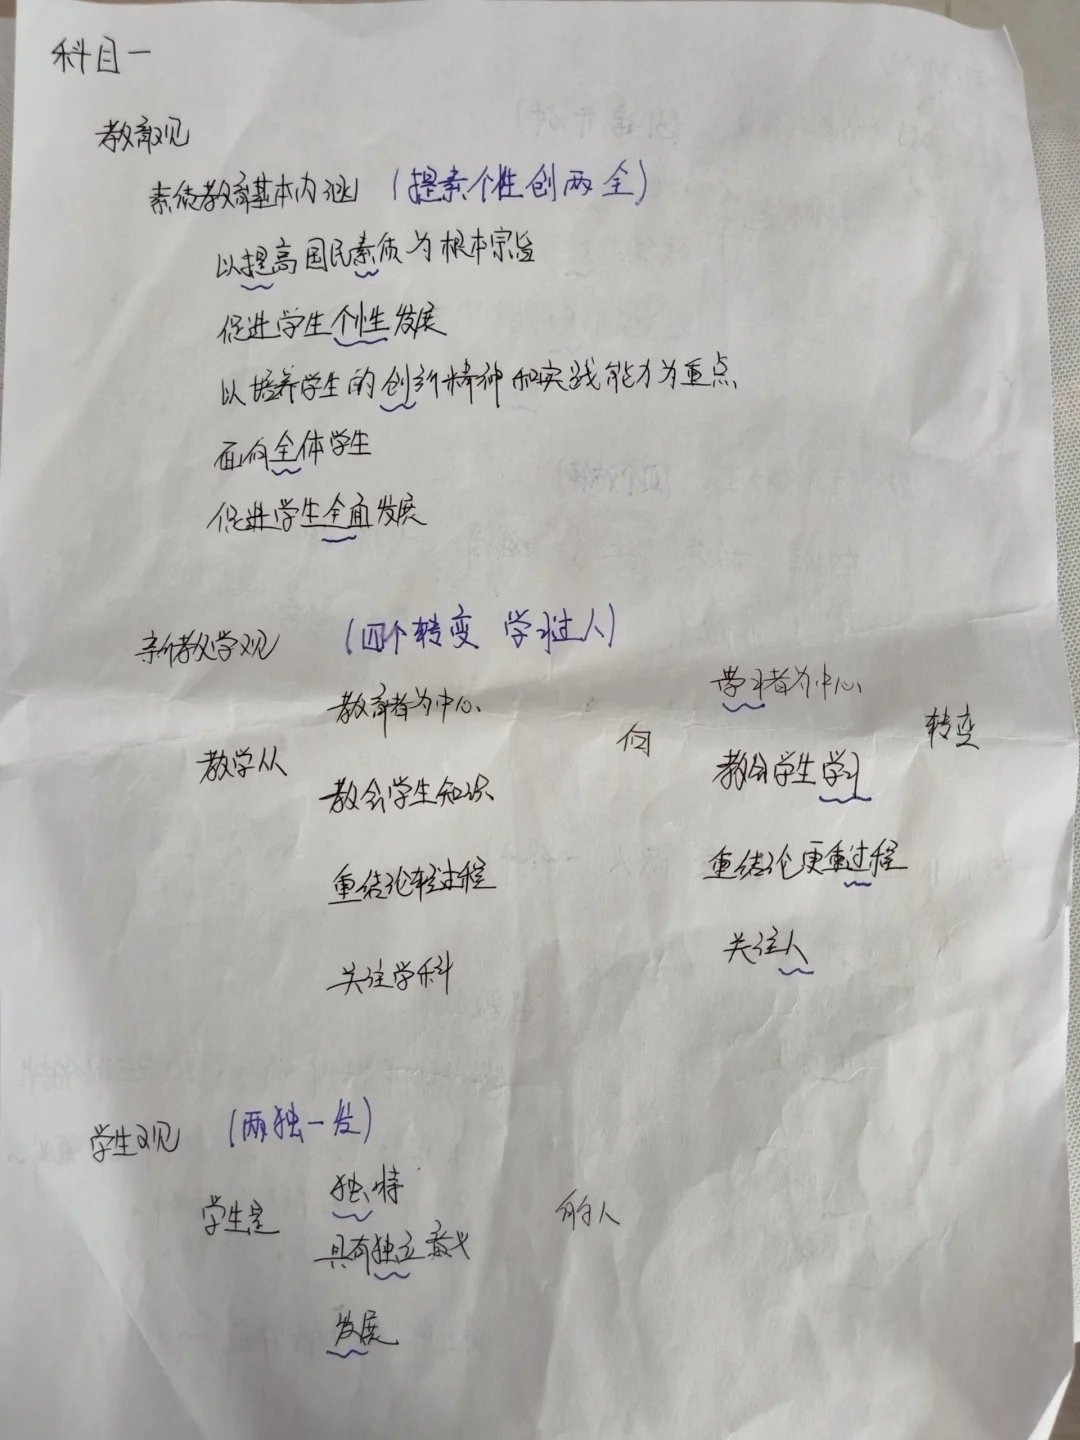 科目一
教育观
素质教育基本内涵 (提素个性创两全)
以提高国民素质为根本宗旨
促进学生个性发展
以培养学生的创新精神和实践能力为重点
面向全体学生
促进学生全面发展
新教学观 (四个转变 学习过人)
教育者为中心 学习者为中心
教学从 向 转变
教会学生知识 教会学生学习
重结论轻过程 重结论更重过程
关注学科 关注人
学生观 (两独一发)
独特
学生是 的人
具有独立意义
发展